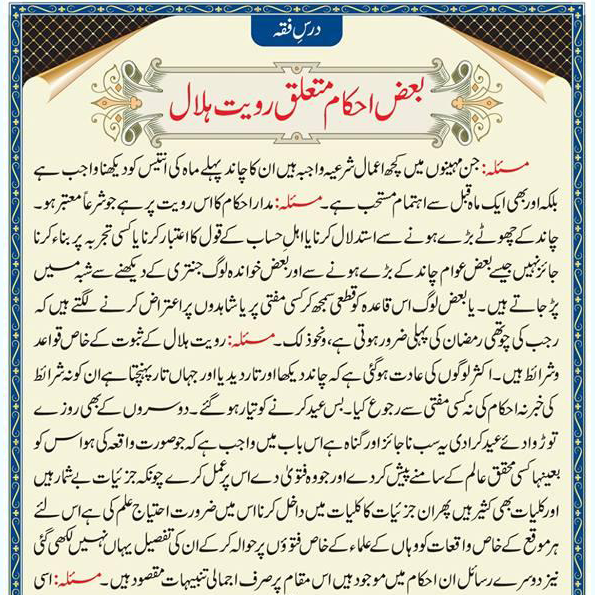 درسِ فقہ
بعض احکام متعلق رویت ہلال
مسئلہ: جن مہینوں میں کچھ اعمال شرعیہ واجبہ ہیں ان کا چاند پہلے ماہ کی انتیس کو دیکھنا واجب ہے
بلکہ اور بھی ایک ماہ قبل سے اہتمام مستحب ہے۔ مسئلہ: مدار احکام کا اس رویت پر ہے جو شرعاً معتبر ہو۔
چاند کے چھوٹے بڑے ہونے سے استدلال کرنا یا اہلِ حساب کے قول کا اعتبار کرنا یا کسی تجربہ پر بناء کرنا
جائز نہیں جیسے بعض عوام چاند کے بڑے ہونے سے اور بعض خواندہ لوگ جنتری کے دیکھنے سے شبہ میں
پڑ جاتے ہیں۔ یا بعض لوگ اس قاعدہ کو قطعی سمجھ کر کسی مفتی پر یا شاہدوں پر اعتراض کرنے لگتے ہیں کہ
رجب کی چوتھی رمضان کی پہلی ضرور ہوتی ہے، ونحوذلک۔ مسئلہ: رویت ہلال کے ثبوت کے خاص قواعد
وشرائط ہیں۔ اکثر لوگوں کی عادت ہوگئی ہے کہ چاند دیکھا اور تار دیدیا اور جہاں تار پہنچتا ہے ان کو نہ شرائط
کی خبر نہ احکام کی نہ کسی مفتی سے رجوع کیا۔ بس عید کرنے کو تیار ہو گئے۔ دوسروں کے بھی روزے
توڑوا دئے عید کرا دی یہ سب ناجائز اور گناہ ہے اس باب میں واجب ہے کہ جو صورت واقعہ کی ہو اس کو
بعینہا کسی محقق عالم کے سامنے پیش کر دے اور جو وہ فتویٰ دے اس پر عمل کرے چونکہ جزئیات بے شمار ہیں
اور کلیات بھی کثیر ہیں پھر ان جزئیات کا کلیات میں داخل کرنا اس میں ضرورت احتیاج علم کی ہے اس لئے
ہر موقع کے خاص واقعات کو وہاں کے علماء کے خاص فتوؤں پر حوالہ کر کے ان کی تفصیل یہاں نہیں لکھی گئی
نیز دوسرے رسائل ان احکام میں موجود ہیں اس مقام پر صرف اجمالی تنبیہات مقصود ہیں۔ مسئلہ: اسی